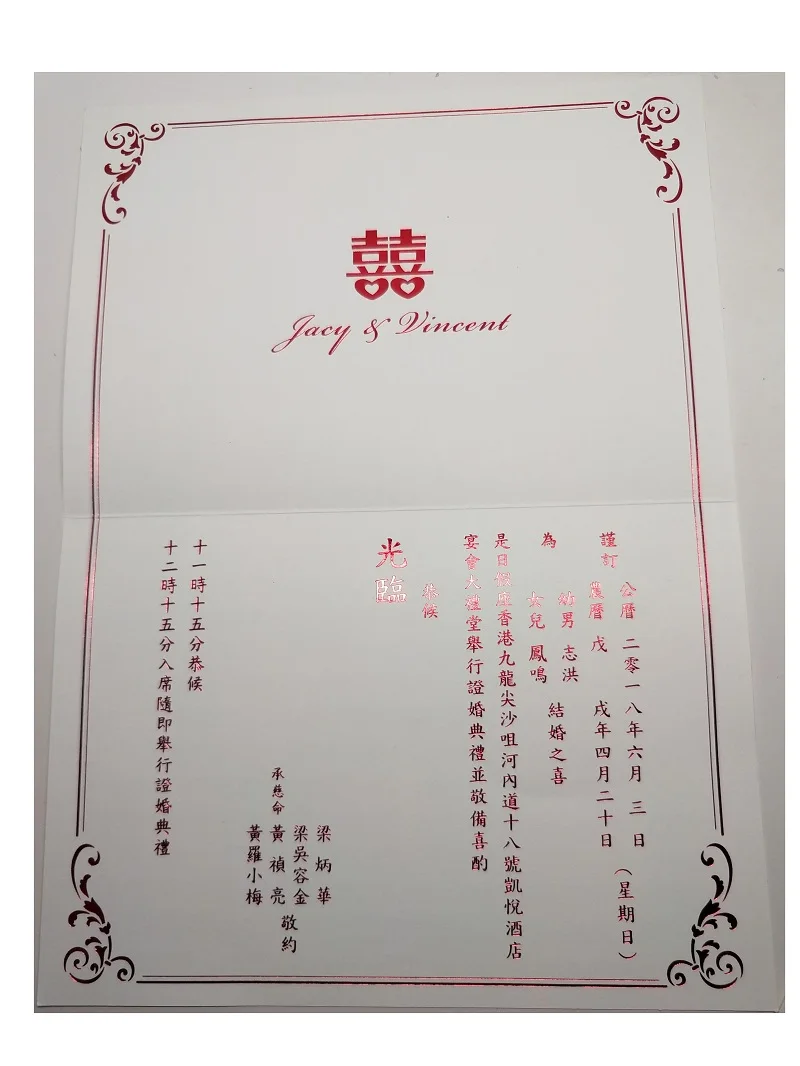 囍
Jacy & Vincent
謹訂
公曆 二零一八年六月三日
農曆 戊戌年四月二十日
(星期日)
為
幼男 志洪
女兒 鳳鳴
結婚之喜
是日假座香港九龍尖沙咀河內道十八號凱悅酒店
宴會大禮堂舉行證婚典禮並敬備喜酌
恭候
光臨
梁炳華
梁吳容金
承慈命
黃禎亮
黃羅小梅
敬約
十一時十五分恭候
十二時十五分入席隨即舉行證婚典禮